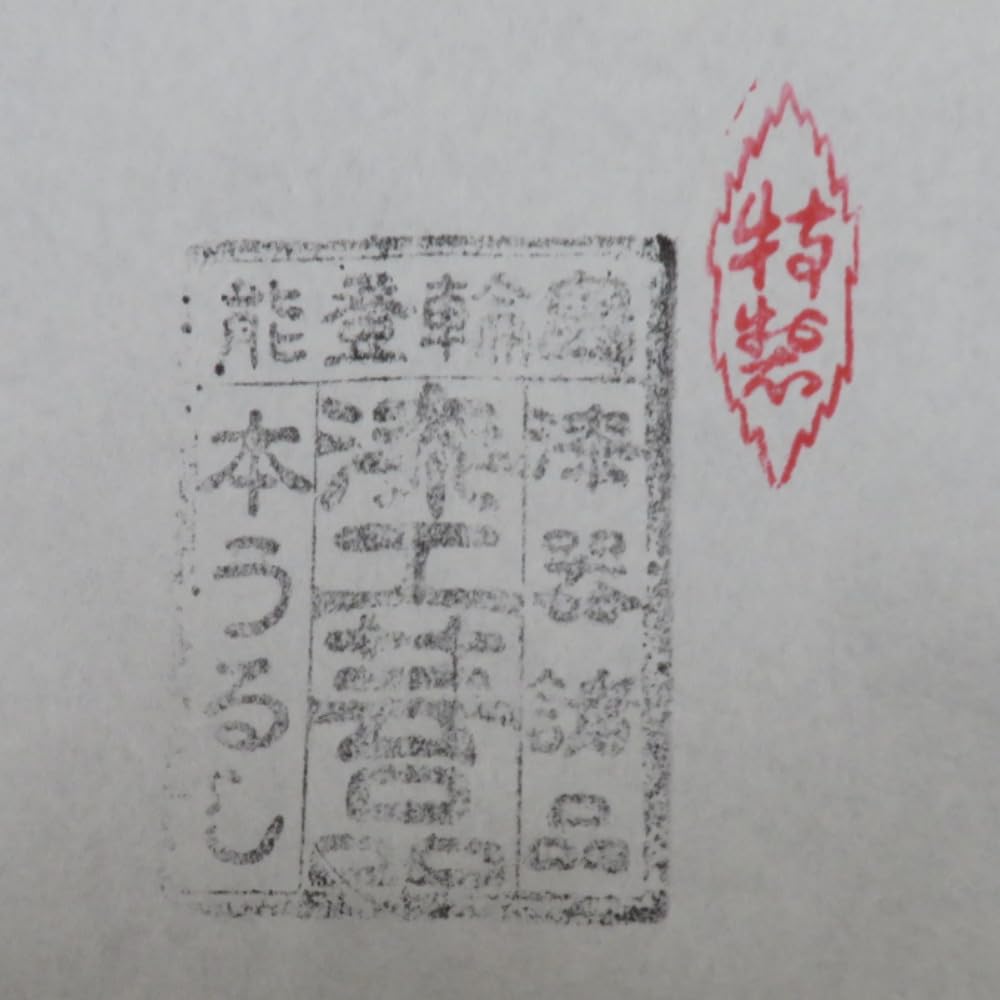 特製
能登輪
漆器諸品
漆工
本うるし